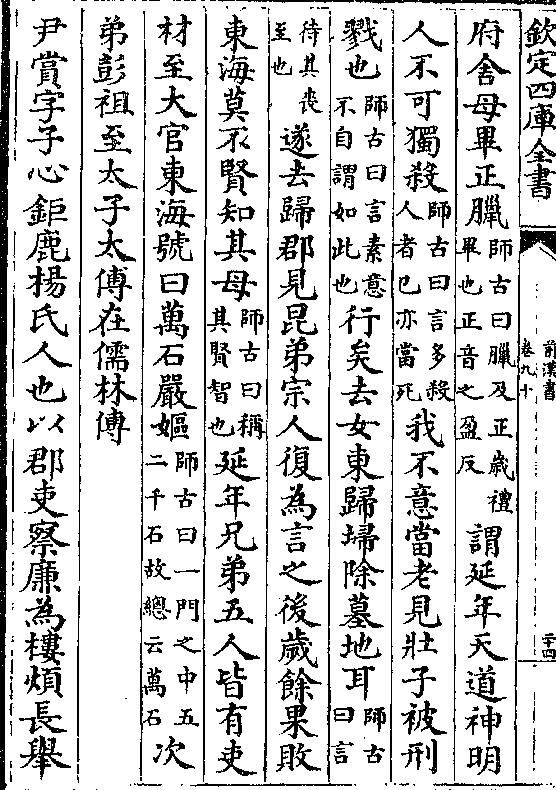 欽定四庫全書
前漢書
卷九十
二十四
府舍母畢正臘師古曰臘及正歲禮畢也正音之盈反謂延年天道神明
人不可獨殺師古曰言多殺人者已亦當死我不意當老見壯子被刑
戮也師古曰言素意不自謂如此也行矣去女東歸埽除墓地耳師古曰言
待其喪至也遂去歸郡見昆弟宗人復為言之後歲餘果敗
東海莫不賢知其母師古曰稱其賢智也延年兄弟五人皆有吏
材至大官東海號曰萬石嚴嫗師古曰一門之中五二千石故總云萬石次
弟彭祖至太子太傅在儒林傳
尹賞字子心鉅鹿楊氏人也以郡吏察廉為樓煩長舉